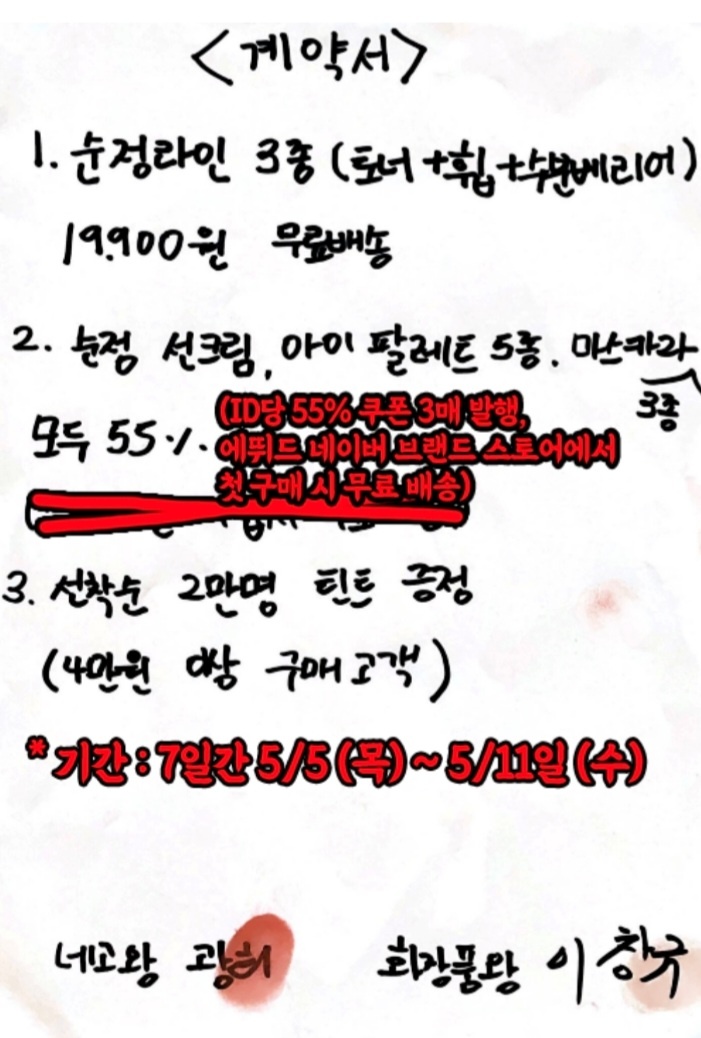 <계약서>
1. 순정라인 3종 (토너+휩+수분베리어)
19.900원 무료배송
2. 순정 선크림, 아이 팔레트 5종. 마스카라
3종
모두 55%.
(ID당 55% 쿠폰 3매 발행,
에뛰드 네이버 브랜드 스토어에서
첫 구매 시 무료 배송)
3. 선착순 2만명 틴트 증정
(4만원 이상 구매고객)
* 기간 : 7일간 5/5 (목) ~ 5/11일 (수)
네고왕 광희 화장품왕 이창규